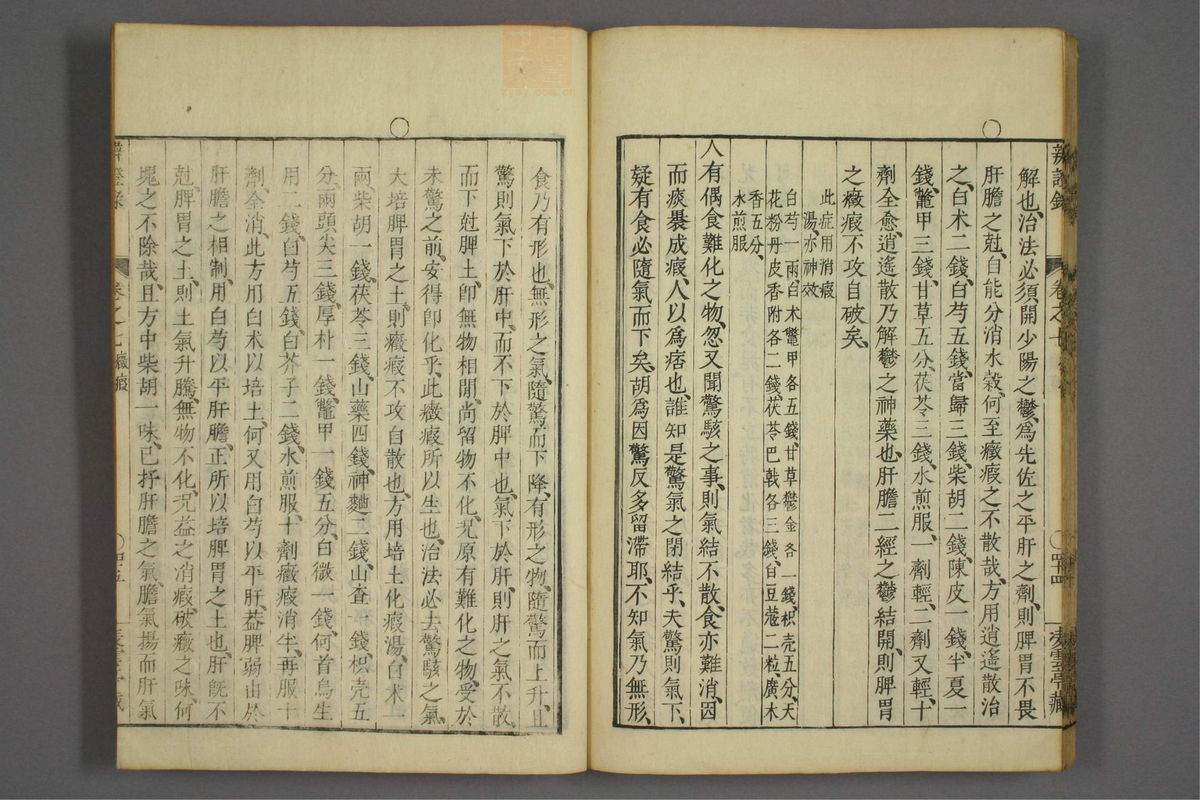 辨證錄
卷之七
四四
解也、治法必須開少陽之鬱、爲先佐之平肝之劑、則脾胃不畏
肝膽之尅、自能分消水穀、何至癥瘕之不散哉、方用逍遙散治
之、白术二錢、白芍五錢、當歸三錢、柴胡二錢、陳皮一錢、半夏一
錢、鱉甲三錢、甘草五分、茯苓三錢、水煎服、一劑輕、二劑又輕、十
劑全愈、逍遙散乃解鬱之神藥也、肝膽二經之鬱結開、則脾胃
之癥瘕不攻自破矣、
此症用消瘕
湯亦神效
白芍一兩白术鱉甲各五錢、甘草鬱金各一錢、枳壳五分、天
花粉丹皮香附各二錢、茯苓巴戟各三錢、白豆蔻二粒、廣木
香五分、
水煎服
人有偶食難化之物、忽又聞驚駭之事、則氣結不散、食亦難消、因
而痰裹成瘕、人以爲痞也、誰知是驚氣之閉結乎、夫驚則氣下、
疑有食必隨氣而下矣、胡爲因驚反多留滯耶、不知氣乃無形、
食乃有形也、無形之氣、隨驚而下降、有形之物、隨驚而上升、且
驚則氣下於肝中、而不下於脾中也、氣下於肝、則肝之氣不散、
而下尅脾土、卽無物相閒、尚留物不化、况原有難化之物、受於
未驚之前、安得卽化乎、此癥瘕所以生也、治法必去驚駭之氣、
大培脾胃之土、則癥瘕不攻自散也、方用培土化瘕湯、白术一
兩、柴胡一錢、茯苓三錢、山藥四錢、神麯二錢、山查一錢、枳壳五
分、兩頭尖三錢、厚朴一錢、鱉甲一錢五分、白微一錢、何首烏生
用二錢、白芍五錢、白芥子二錢、水煎服、十劑癥瘕消半、再服十
劑、全消、此方用白术以培土、何又用白芍以平肝、葢脾弱由於
肝膽之相制、用白芍以平肝膽、正所以培脾胃之土也、肝旣不
尅脾胃之土、則土氣升騰、無物不化、况益之消瘕破癥之味、何
塊之不除哉、且方中柴胡一味、已抒肝膽之氣、膽氣揚而肝氣
卷之七 癥瘕
四五